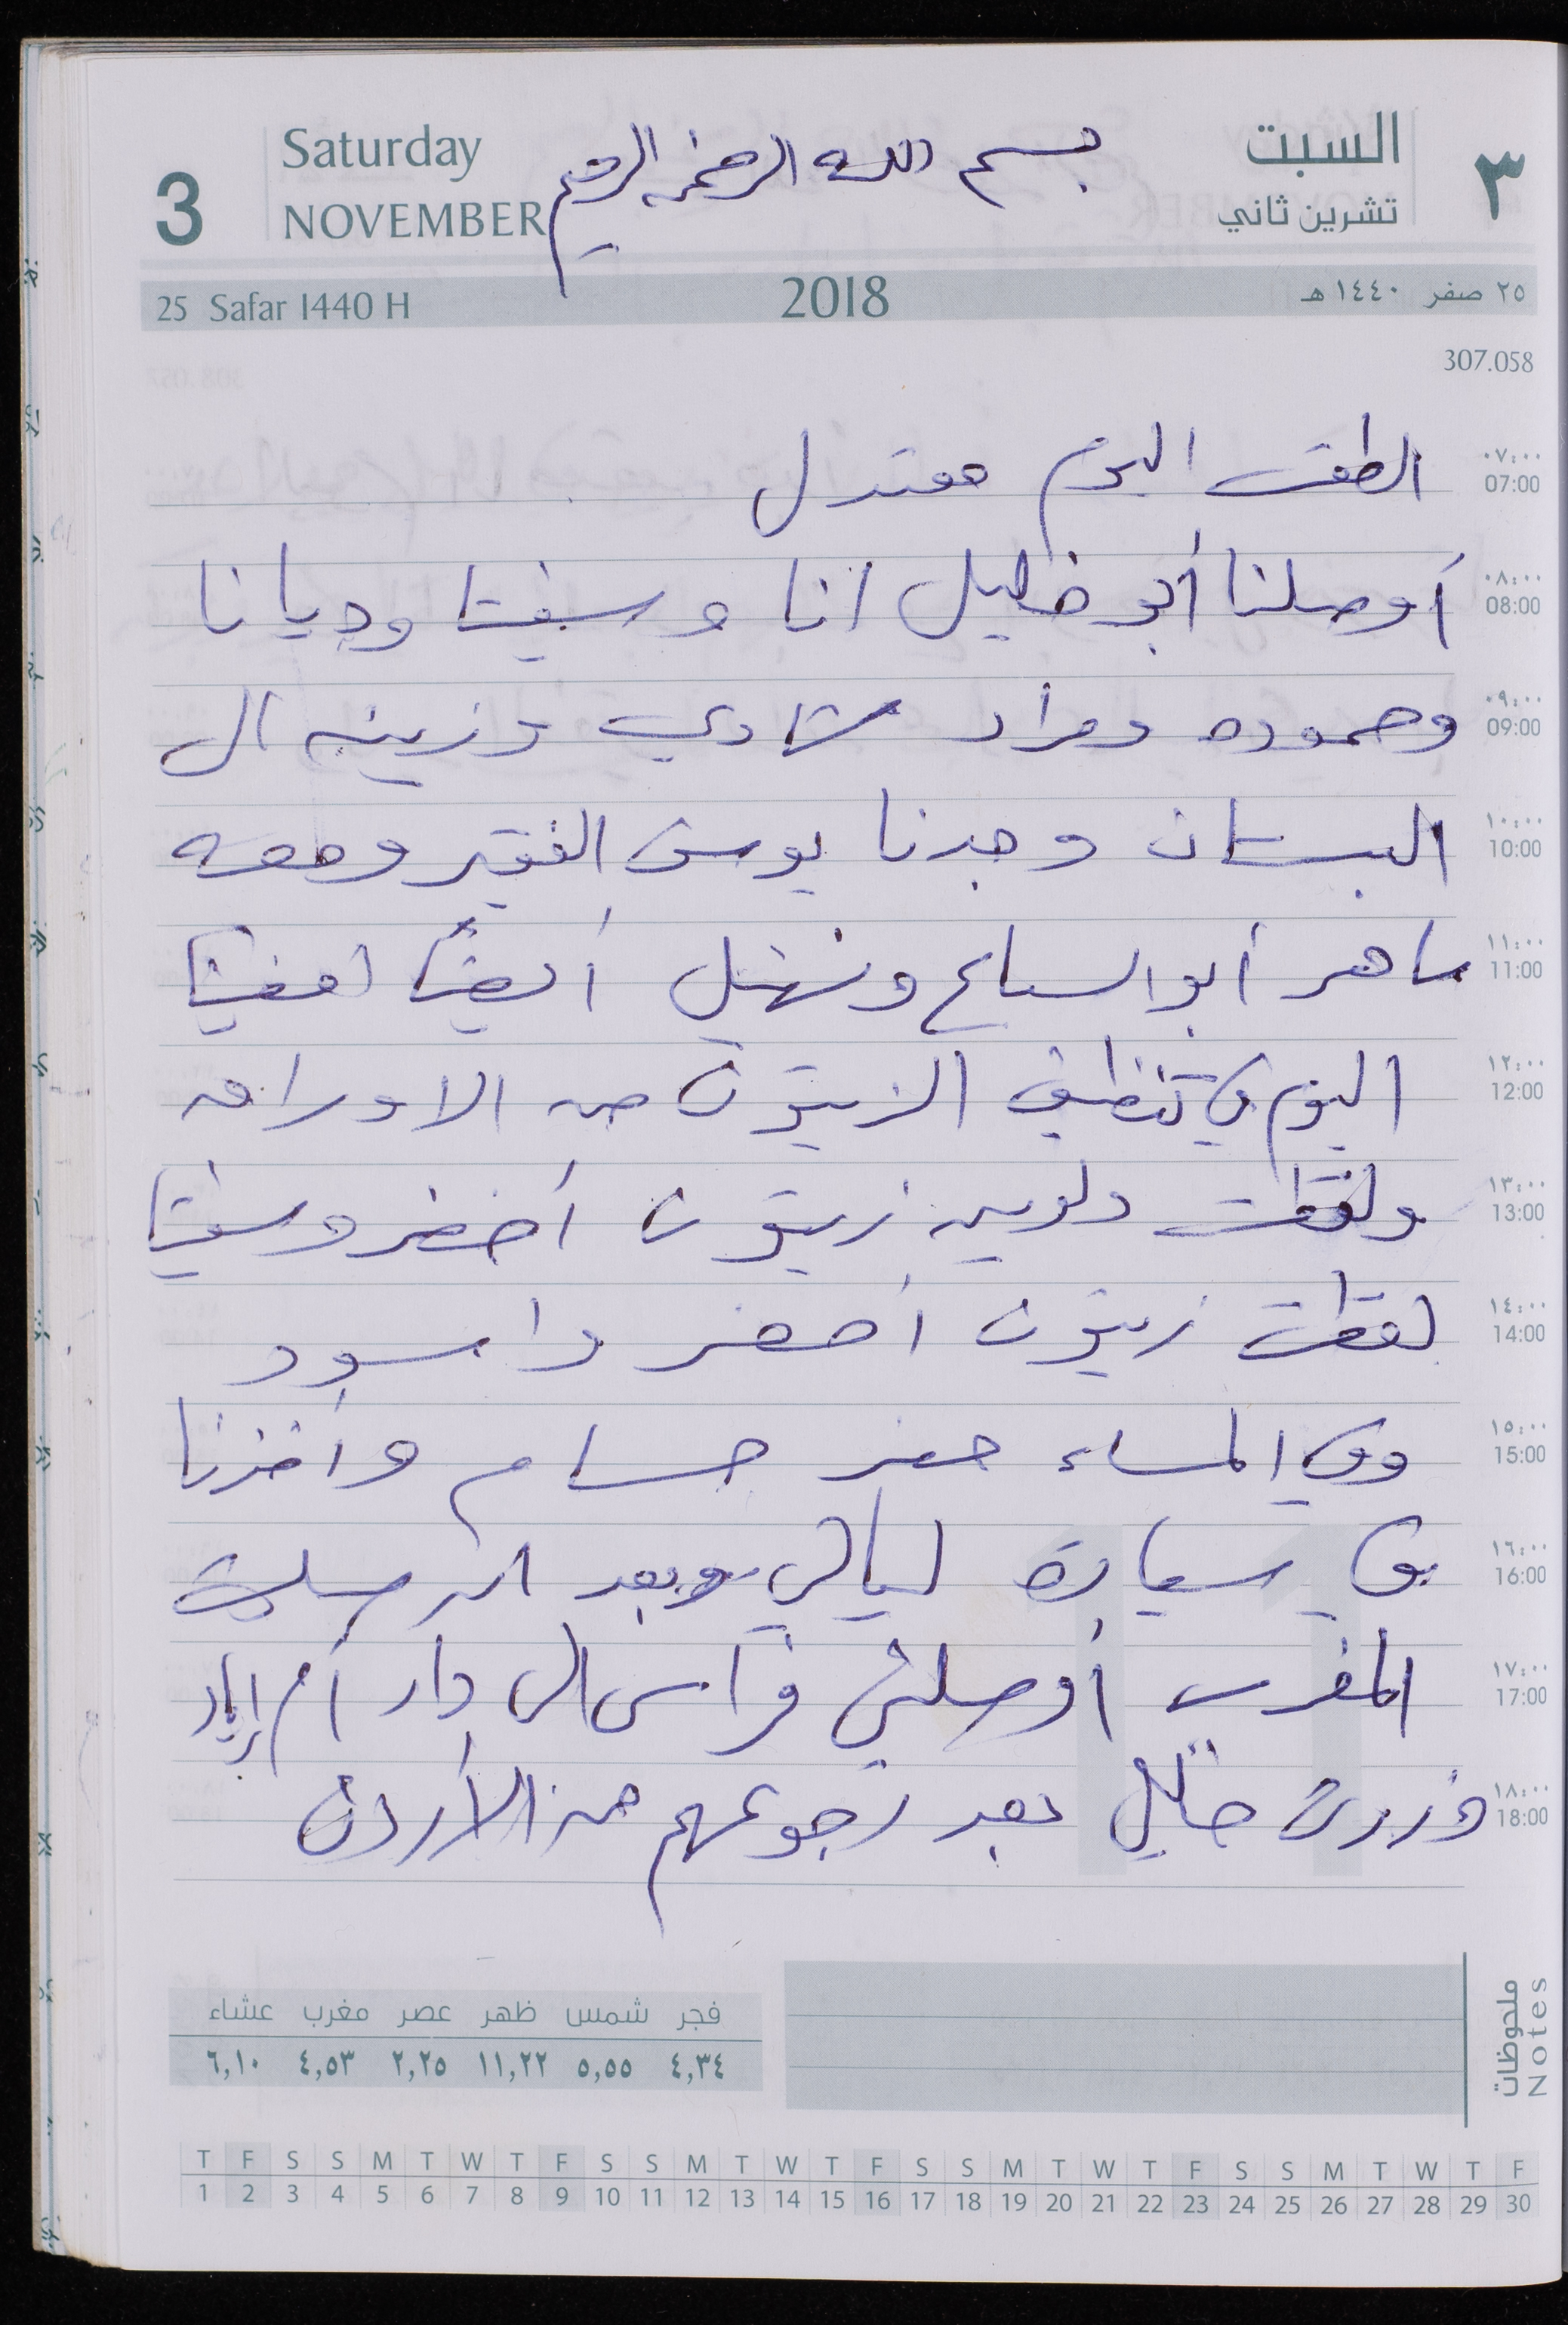 Saturday
3
NOVEMBER
بسم الله الرحمن الرحيم
السبت
٣
تشرين ثاني
25 Safar 1440 H
2018
٢٥ صفر ١٤٤٠ هـ
307.058
٠٧:٠٠ 07:00 الطقس اليوم معتدل
٠٨:٠٠ 08:00 أوصلنا أبو خليل انا و وديانا
٠٩:٠٠ 09:00 وحموده ومراد شادي وزينه الى
١٠:٠٠ 10:00 البستان وجدنا يوسف الفقير ومعه
١١:٠٠ 11:00 ماهر أبو السباع أيضاً امضينا
١٢:٠٠ 12:00 اليوم في تنظيف الزيتون من الاوراق
١٣:٠٠ 13:00 ولقطت دلوين زيتون أخضر
١٤:٠٠ 14:00 لقطت زيتون اخضر واسود
١٥:٠٠ 15:00 وفي المساء حضر حسام وأخذنا
١٦:٠٠ 16:00 في سيارة ليالي وبعد ان صليت
١٧:٠٠ 17:00 المغرب أوصلني فراس الى دار أم إياد
١٨:٠٠ 18:00 وزرت خليل بعد رجوعهم من الأردن
فجر شمس ظهر عصر مغرب عشاء
٤,٣٤ ٥,٥٥ ١١,٢٢ ٢,٢٥ ٤,٥٣ ٦,١٠
ملحوظات
Notes
T F S S M T W T F S S M T W T F S S M T W T F S S M T W T F
1 2 3 4 5 6 7 8 9 10 11 12 13 14 15 16 17 18 19 20 21 22 23 24 25 26 27 28 29 30